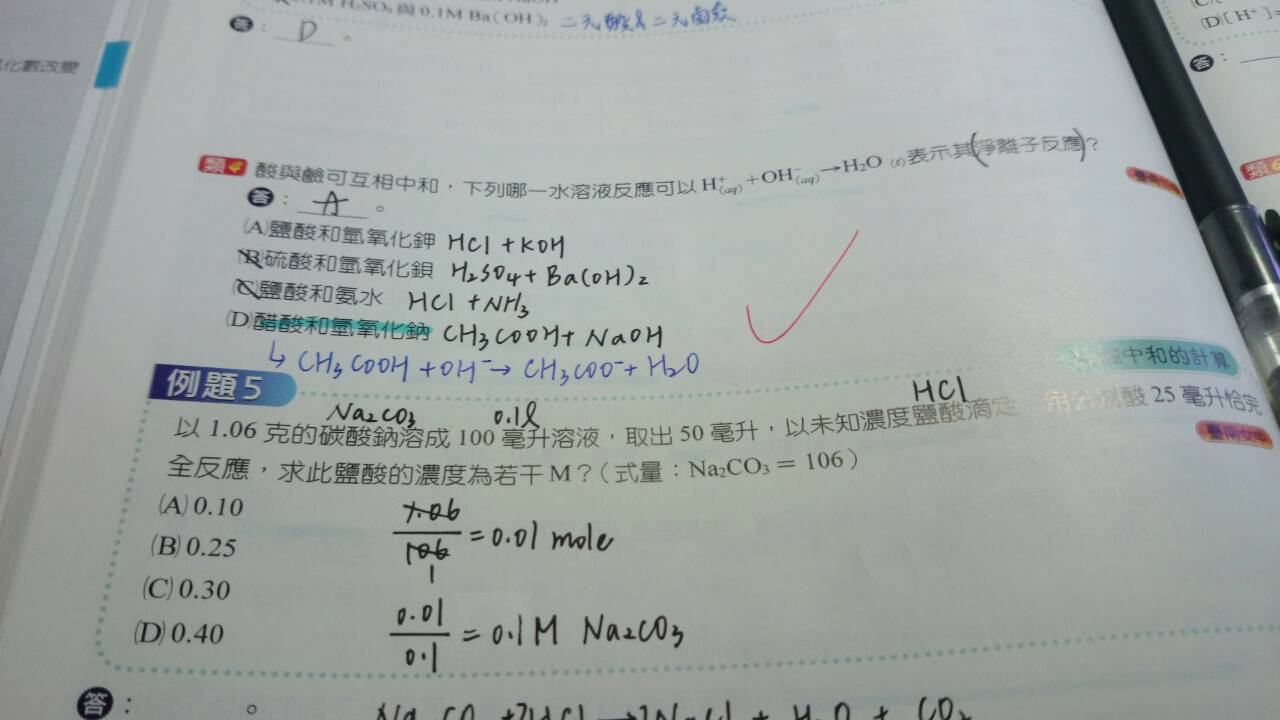 0.1M H₂SO₄ 與 0.1M Ba(OH)₂ 二元酸&二元鹼
答：D。
化數改變
(D)[H⁺]=
答：
類4 酸與鹼可互相中和，下列哪一水溶液反應可以 H⁺(aq)+OH⁻(aq)→H₂O(ℓ)表示其(淨離子反應)？
答：A。
(A)鹽酸和氫氧化鉀 HCl + KOH
(B)硫酸和氫氧化鋇 H₂SO₄ + Ba(OH)₂
(C)鹽酸和氨水 HCl + NH₃
(D)醋酸和氫氧化鈉 CH₃COOH + NaOH
↳ CH₃COOH + OH⁻ → CH₃COO⁻ + H₂O
例題5
中和的計算
Na₂CO₃ 0.1ℓ HCl
以 1.06 克的碳酸鈉溶成 100 毫升溶液，取出 50 毫升，以未知濃度鹽酸滴定 酸 25 毫升恰完
全反應，求此鹽酸的濃度為若干 M？(式量：Na₂CO₃＝106)
臺南女中
(A) 0.10
(B) 0.25
(C) 0.30
(D) 0.40
1.06/106 = 0.01 mole
1
0.01/0.1 = 0.1M Na₂CO₃
答： 。
Na₂CO₃ + 2HCl → 2NaCl + H₂O + CO₂